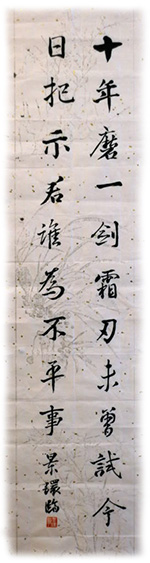 十年磨一剑霜刃未曾試今
日把示君誰為不平事景環臨